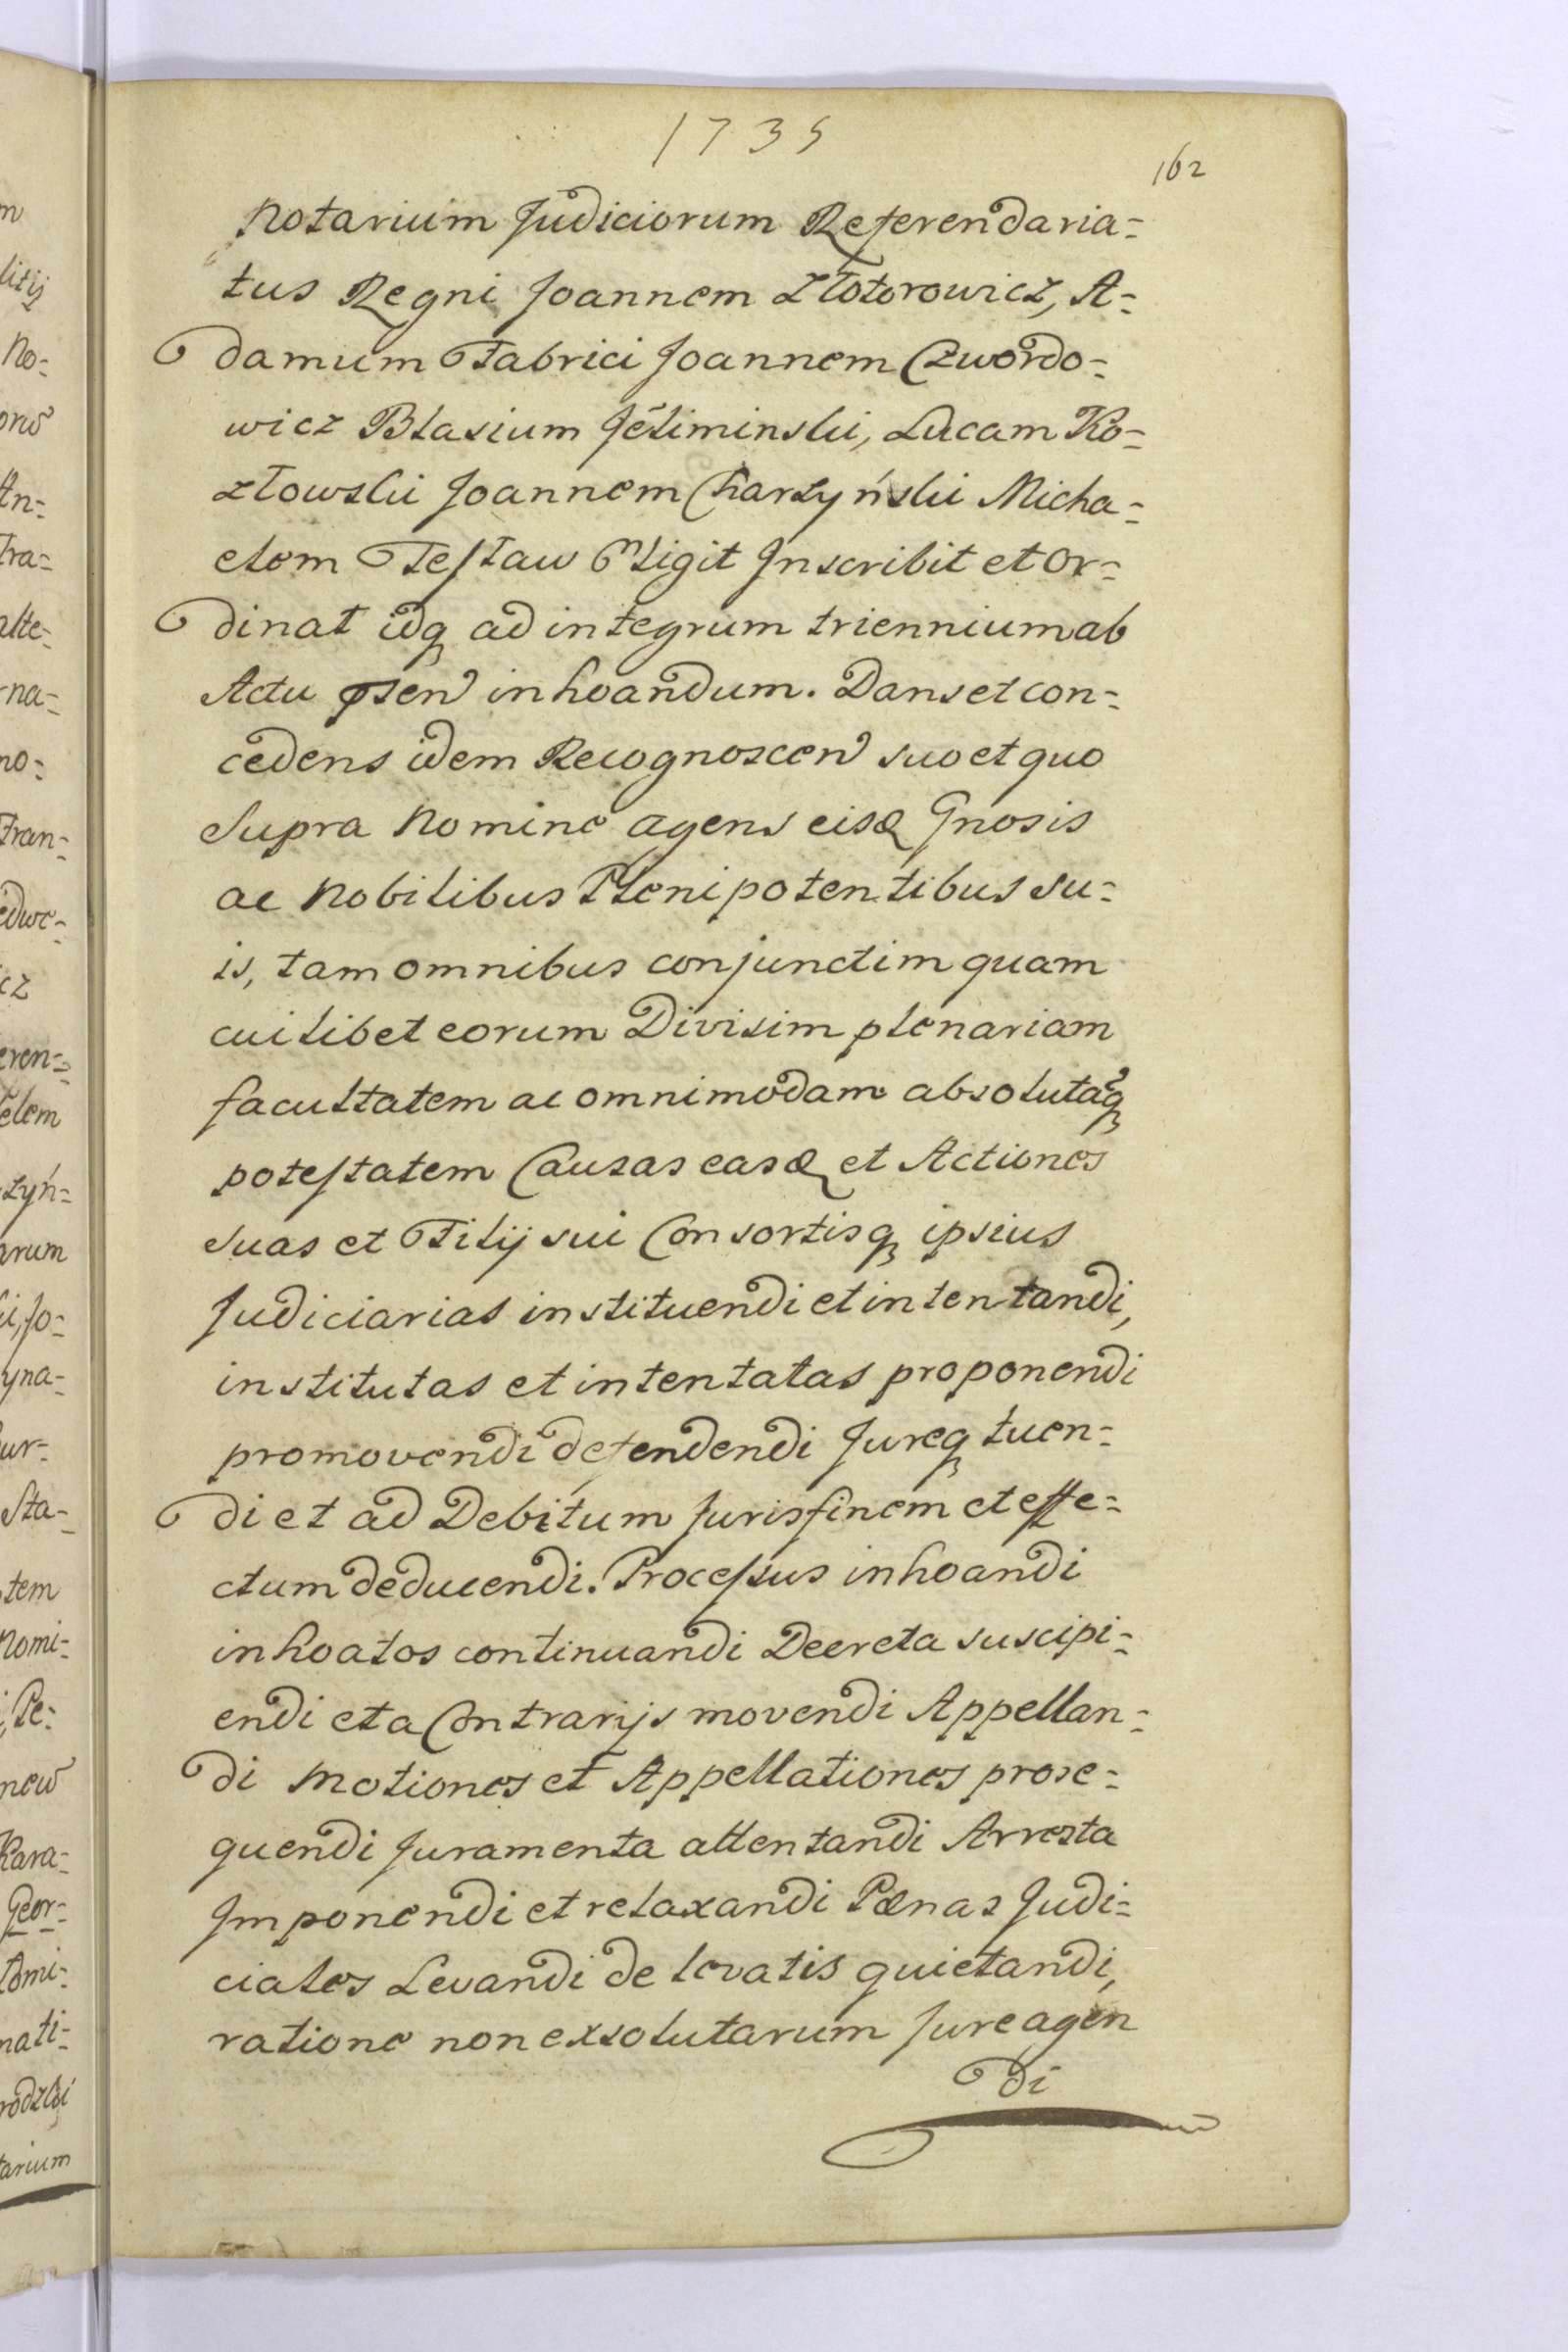 1735
162
Notarium Judiciorum Referendaria=
tus Regni Joannem Złotorowicz, A=
damum Fabrici Joannem Czwordo=
wicz Blasium Jéliminski, Lucam Ko=
złowski Joannem Charzyński Micha=
elem Testaw Eligit Inscribit et Or=
dinat idq ad integrum triennium ab
Actu psen inhoandum. Dans et con=
cedens idem Recognoscen suo et quo
Supra Nomine agens eisd Gnosis
ac Nobilibus Plenipotentibus su=
is, tam omnibus conjunctim quam
cuilibet eorum Divisim plenariam
facultatem ac omnimodam absolutaq
potestatem Causas easd et Actiones
suas et Filij sui Consortisq ipsius
Judiciarias instituendi et intentandi,
institutas et intentatas proponendi
promovendi defendendi Jureq tuen=
di et ad Debitum Juris finem et effe=
ctum deducendi. Processus inhoandi
inhoatos continuandi Decreta suscipi=
endi et a Contrarijs movendi Appellan=
di Motiones et Appellationes prose=
quendi Juramenta attentandi Arresta
Imponendi et relaxandi Pænas Judi=
ciales Levandi de levatis quietandi,
ratione non exsolutarum Jure agen
di